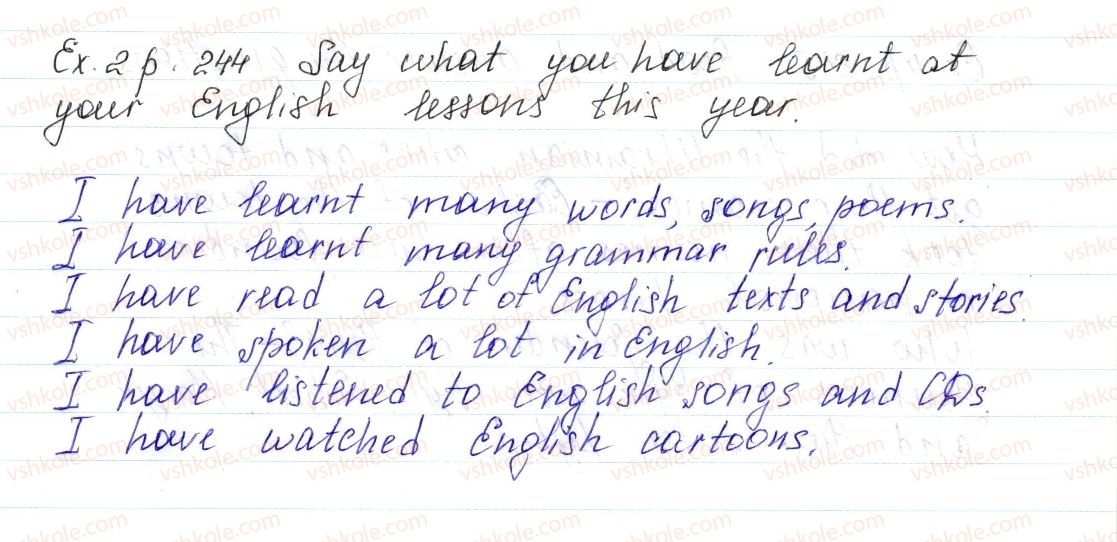 Ex. 2 p. 244 Say what you have learnt at
your English lessons this year.
I have learnt many words, songs, poems.
I have learnt many grammar rules.
I have read a lot of English texts and stories.
I have spoken a lot in English.
I have listened to English songs and CDs.
I have watched English cartoons.
vshkole.com